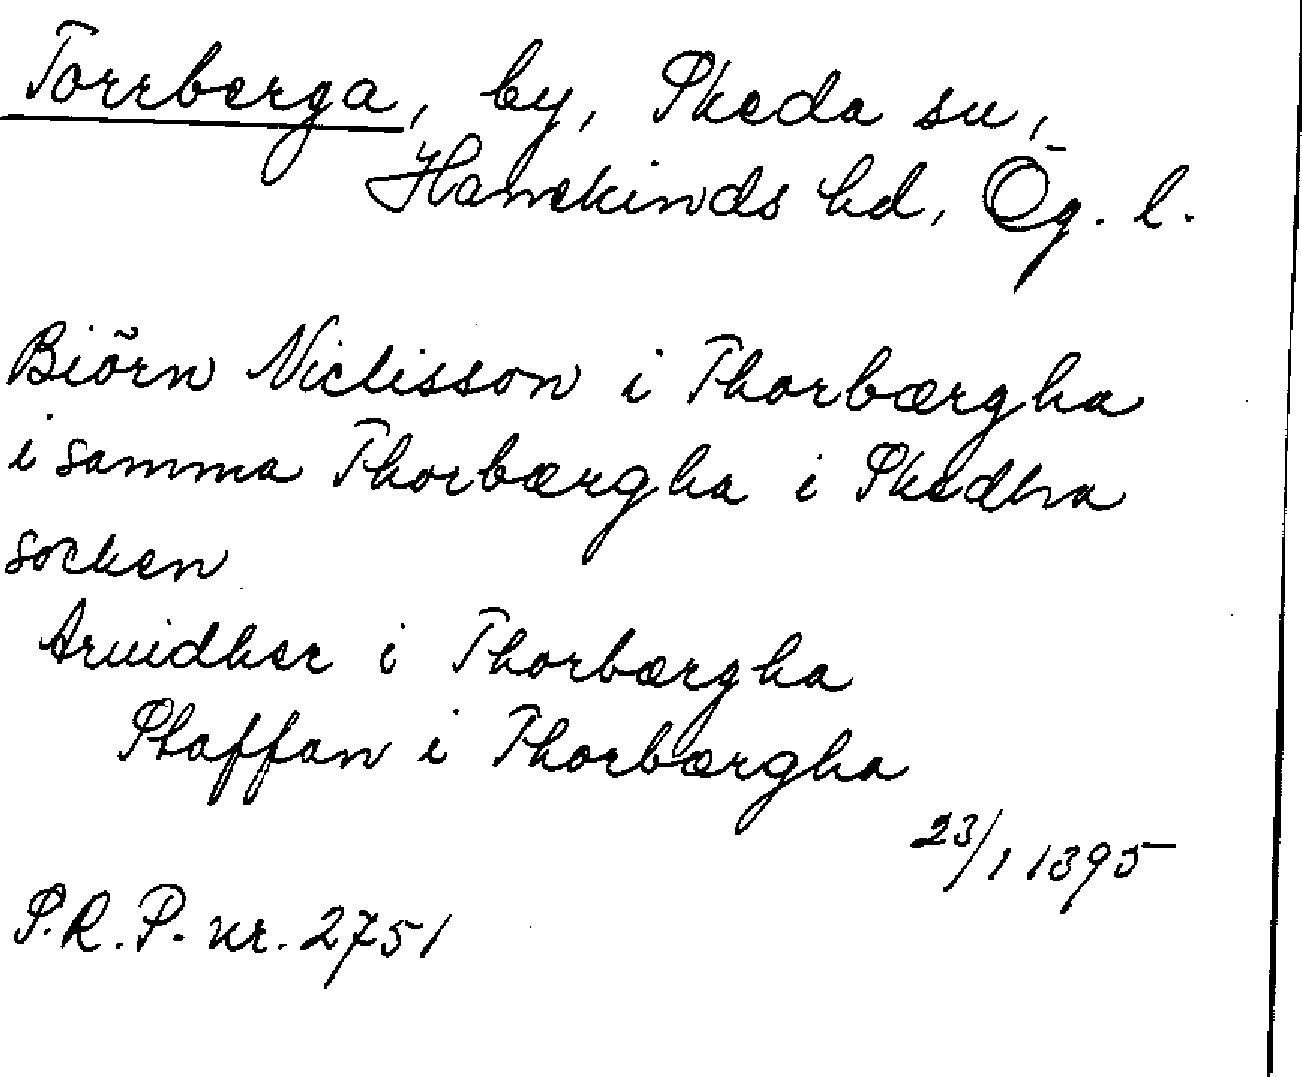 Torrberga, by, Skeda sn,
Hanekinds hd, Ög. l.
Biörn Niclisson i Thorbærgha
i samma Thorbærgha i Skedha
socken
Aruidher i Thorbærgha
Staffan i Thorbærgha
23/1 1395
S.R.P. nr. 2751